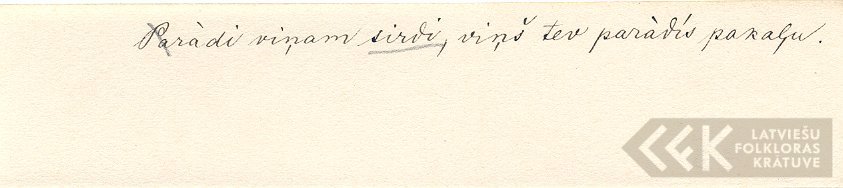 Paràdi viņam sirdi, viņš tev paràdís pakaļu.
LATVIEŠU
FOLKLORAS
KRĀTUVE